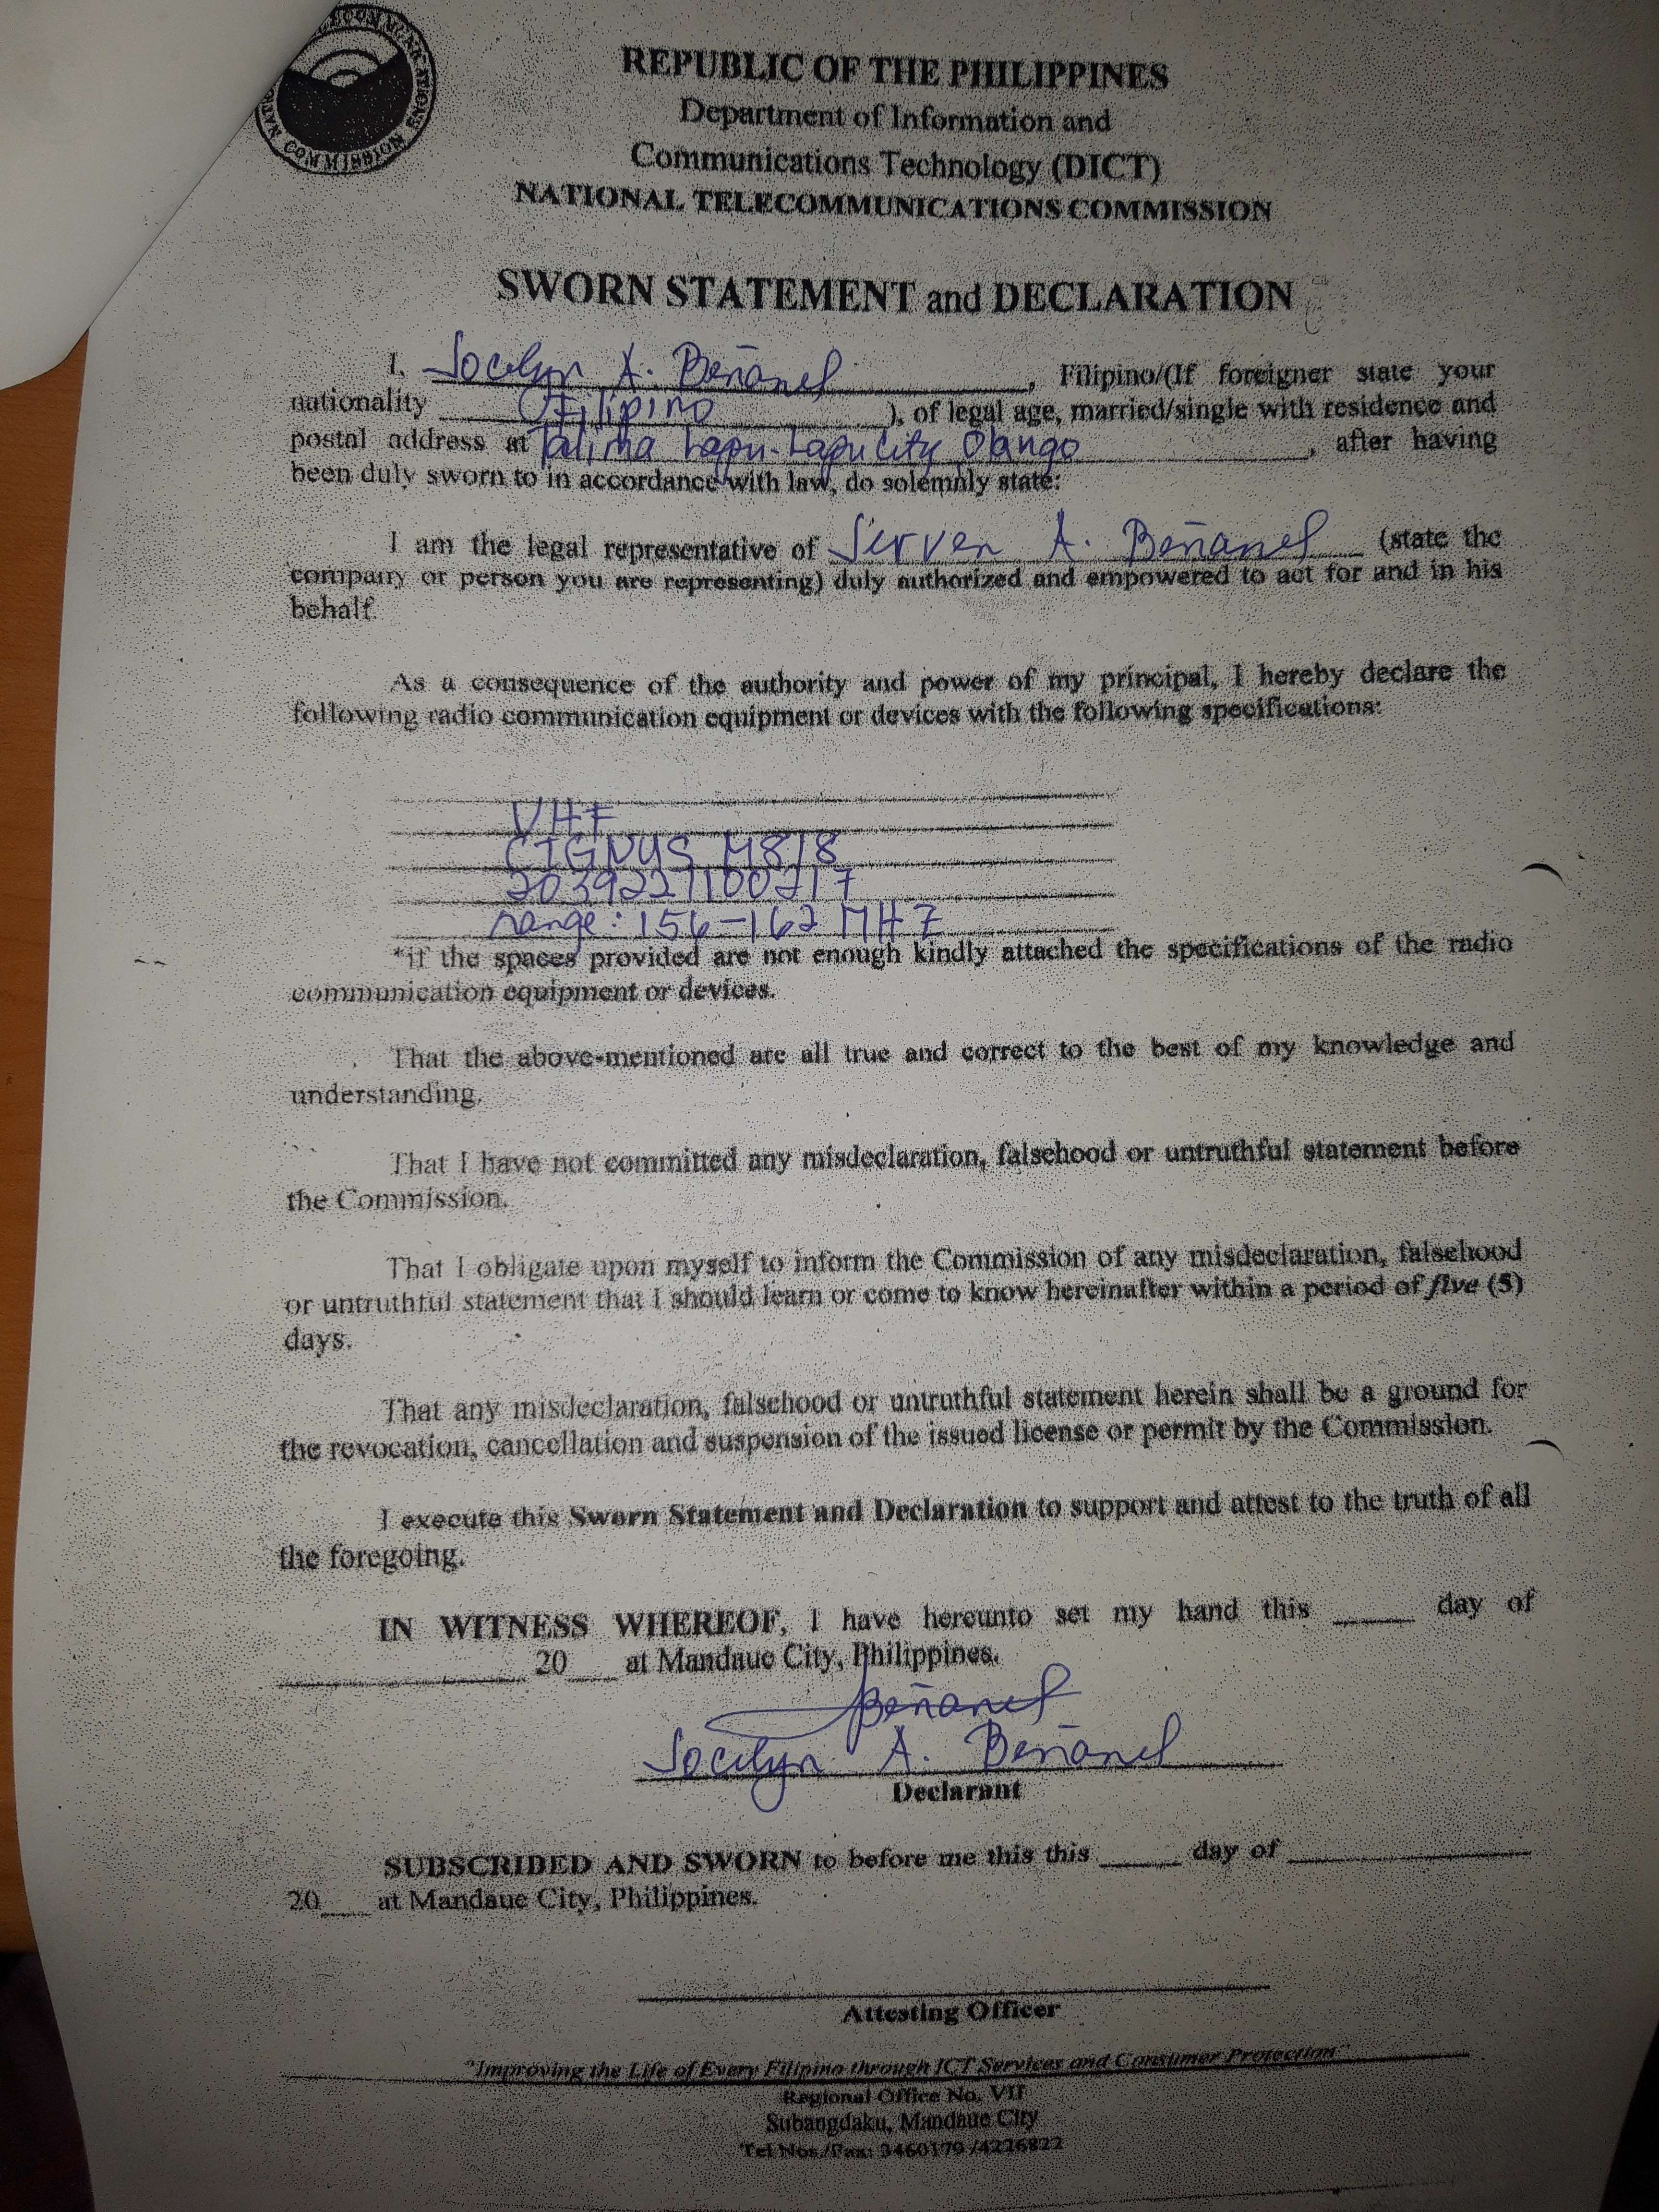 COMMISSION
REPUBLIC OF THE PHILIPPINES
Department of Information and
Communications Technology (DICT)
NATIONAL TELECOMMUNICATIONS COMMISSION
SWORN STATEMENT and DECLARATION
I, Jocelyn A. Beñanel, Filipino/(If foreigner state your
nationality Filipino), of legal age, married/single with residence and
postal address at Talima Lapu-Lapu City Olango, after having
been duly sworn to in accordance with law, do solemnly state:
I am the legal representative of Jerven A. Beñanel (state the
company or person you are representing) duly authorized and empowered to act for and in his
behalf.
As a consequence of the authority and power of my principal, I hereby declare the
following radio communication equipment or devices with the following specifications:
VHF
CIGNUS M818
2039221100217
range: 156-162 MHZ
*if the spaces provided are not enough kindly attached the specifications of the radio
communication equipment or devices.
That the above-mentioned are all true and correct to the best of my knowledge and
understanding.
That I have not committed any misdeclaration, falsehood or untruthful statement before
the Commission.
That I obligate upon myself to inform the Commission of any misdeclaration, falsehood
or untruthful statement that I should learn or come to know hereinafter within a period of five (5)
days.
That any misdeclaration, falsehood or untruthful statement herein shall be a ground for
the revocation, cancellation and suspension of the issued license or permit by the Commission.
I execute this Sworn Statement and Declaration to support and attest to the truth of all
the foregoing.
IN WITNESS WHEREOF, I have hereunto set my hand this ____ day of
____ 20__ at Mandaue City, Philippines.
Beñanel
Jocelyn A. Beñanel
Declarant
SUBSCRIDED AND SWORN to before me this this ____ day of ____
20__ at Mandaue City, Philippines.
Attesting Officer
"Improving the Life of Every Filipino through ICT Services and Consumer Protection"
Regional Office No. VII
Subangdaku, Mandaue City
Tel Nos./Fax: 3460179 /4226822